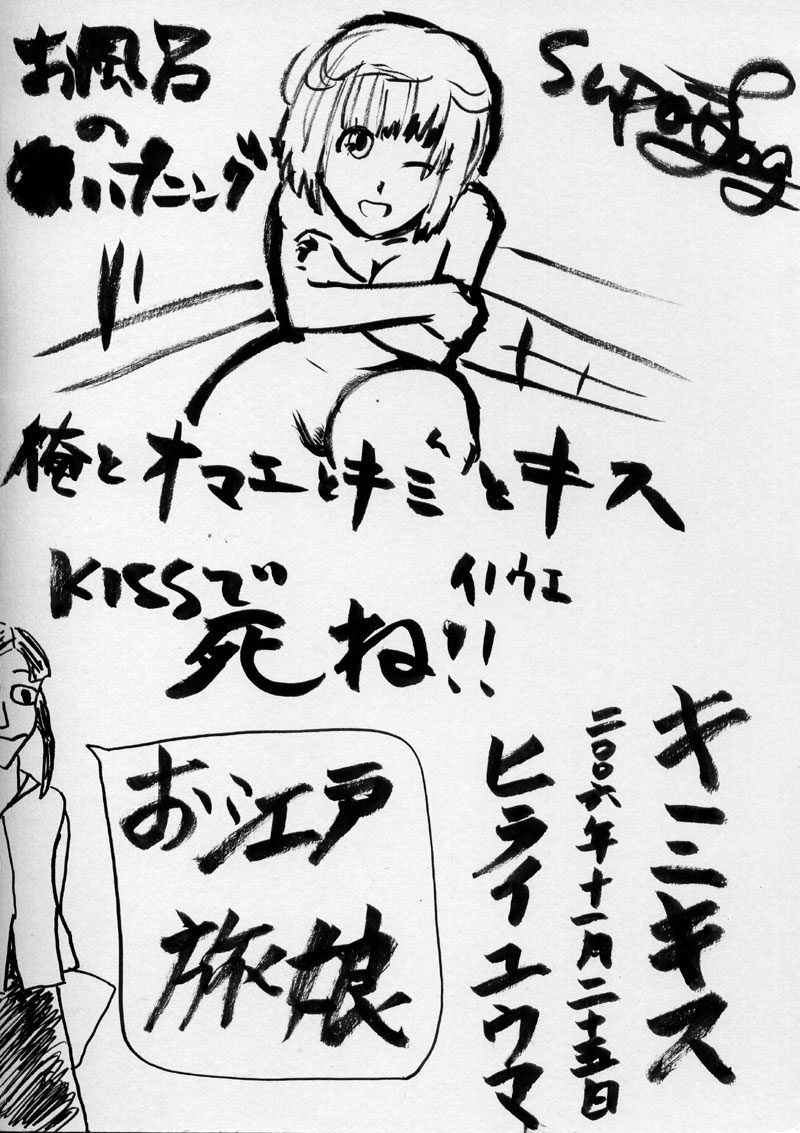 お風呂
の
ハプニング
俺とオマエとキミとキス
イノウエ
KISSで
死ね!!
キミキス
二〇〇六年十一月二十五日
ヒライユウマ
お江戸
旅娘